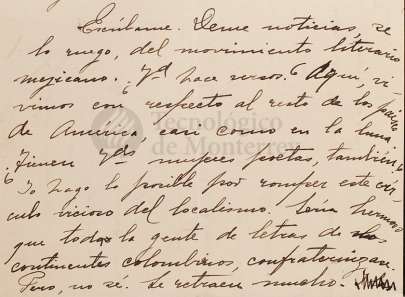 Escríbame. Deme noticias, se
lo ruego, del movimiento literario
mejicano. ¿Yd hace versos? Aquí, vi-
vimos con respecto al resto de los países
de América, casi como en la luna.
¿Tienen Yds mujeres poetas, también?
Yo hago lo posible por romper este cír-
culo vicioso del localismo. Sería hermoso
que toda la gente de letras de los
continentes colombinos, confraternizara.
Pero, no se. Se retraen mucho.
Tecnológico
de Monterrey